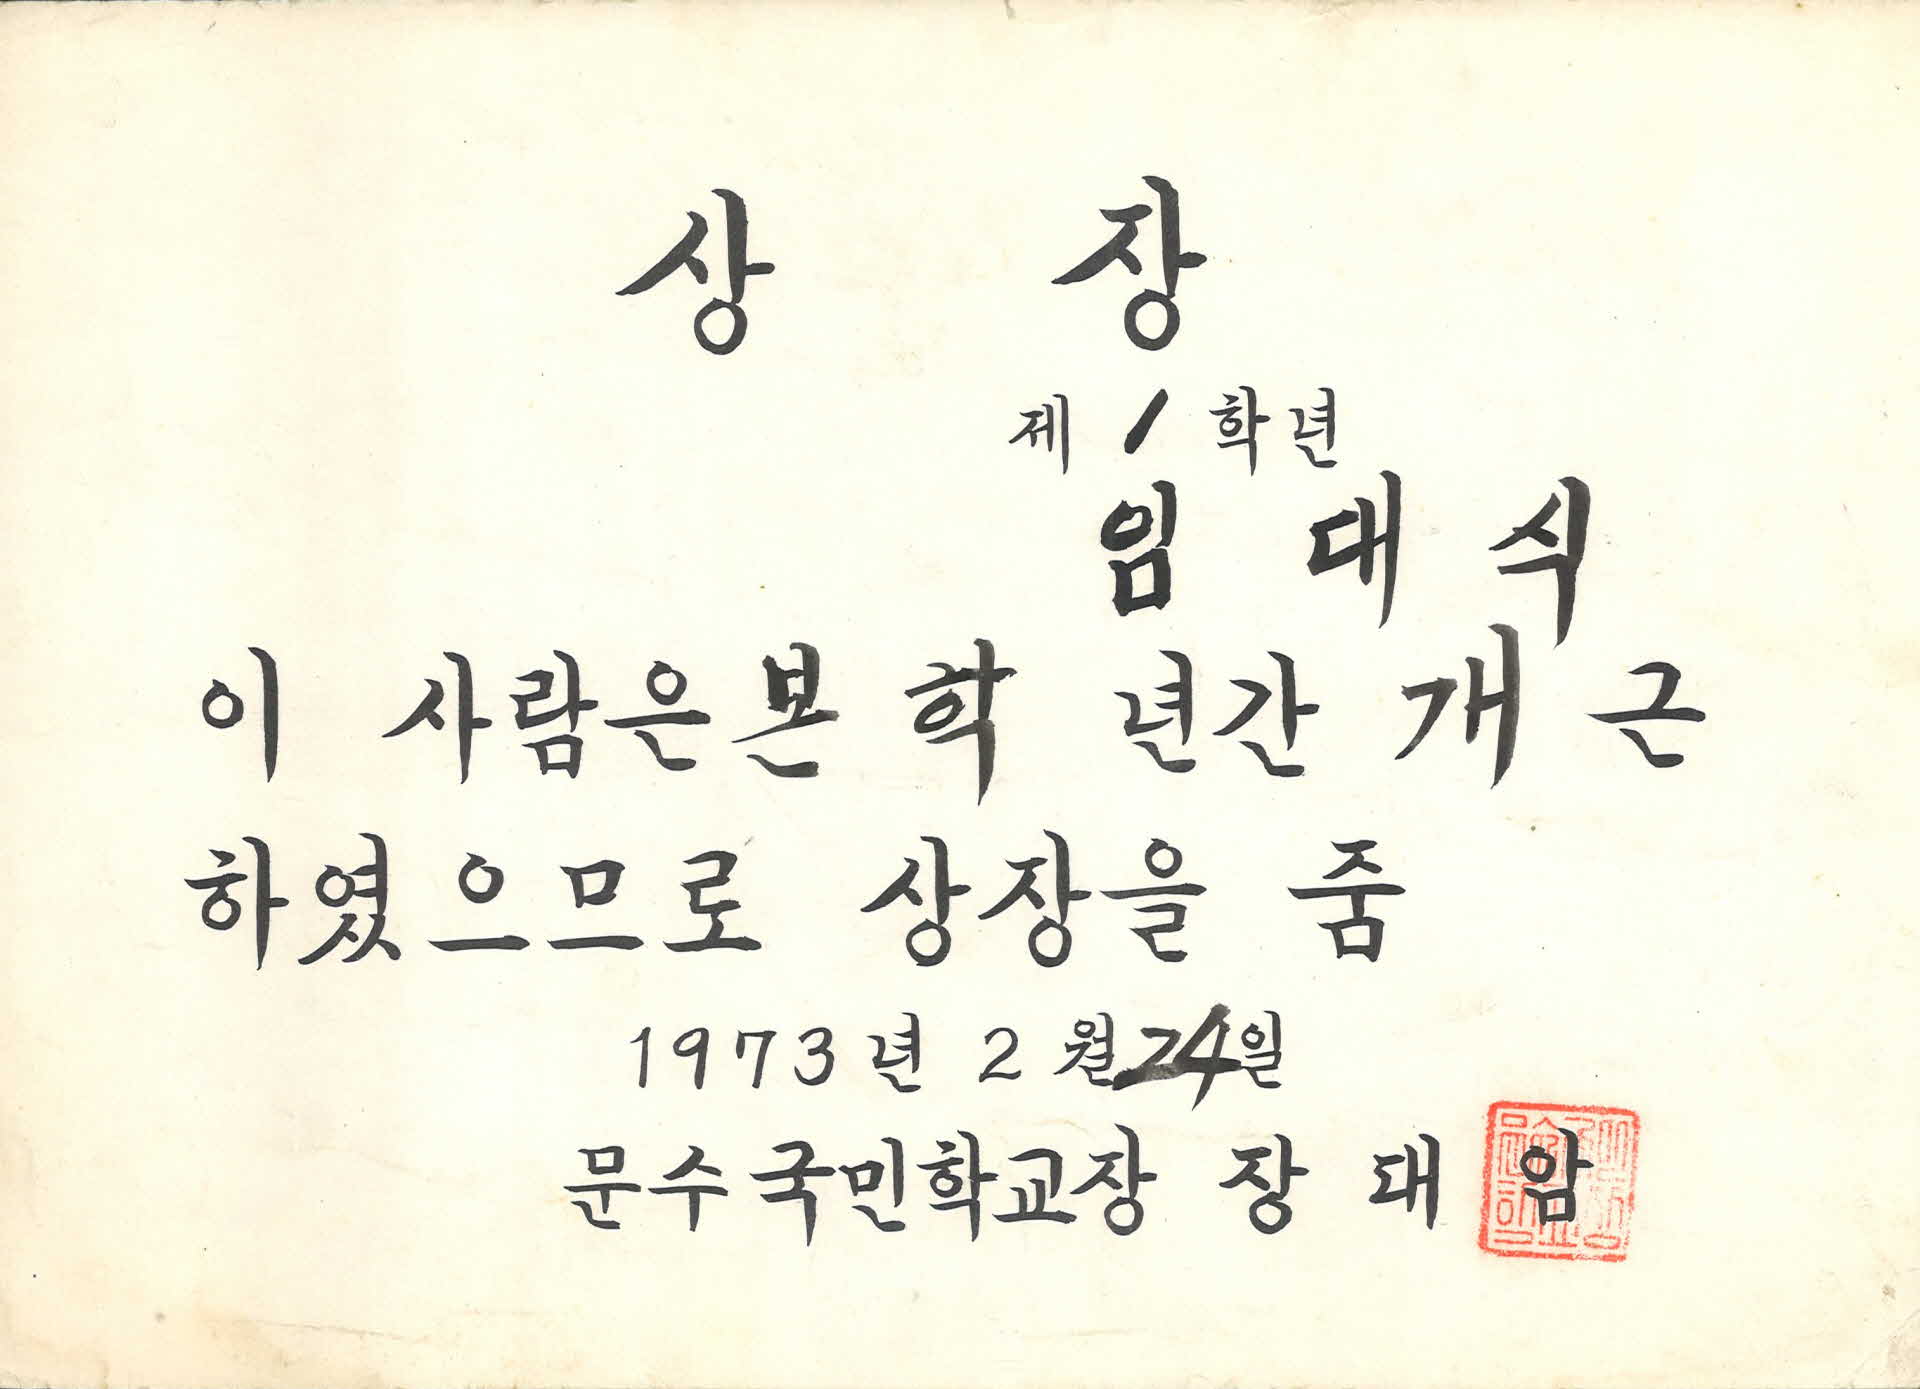 상 장
제 1 학년
임 대 식
이 사람은 본 학 년간 개 근
하였으므로 상장을 줌
1973년 2월 24일
문수국민학교장 장 대 암